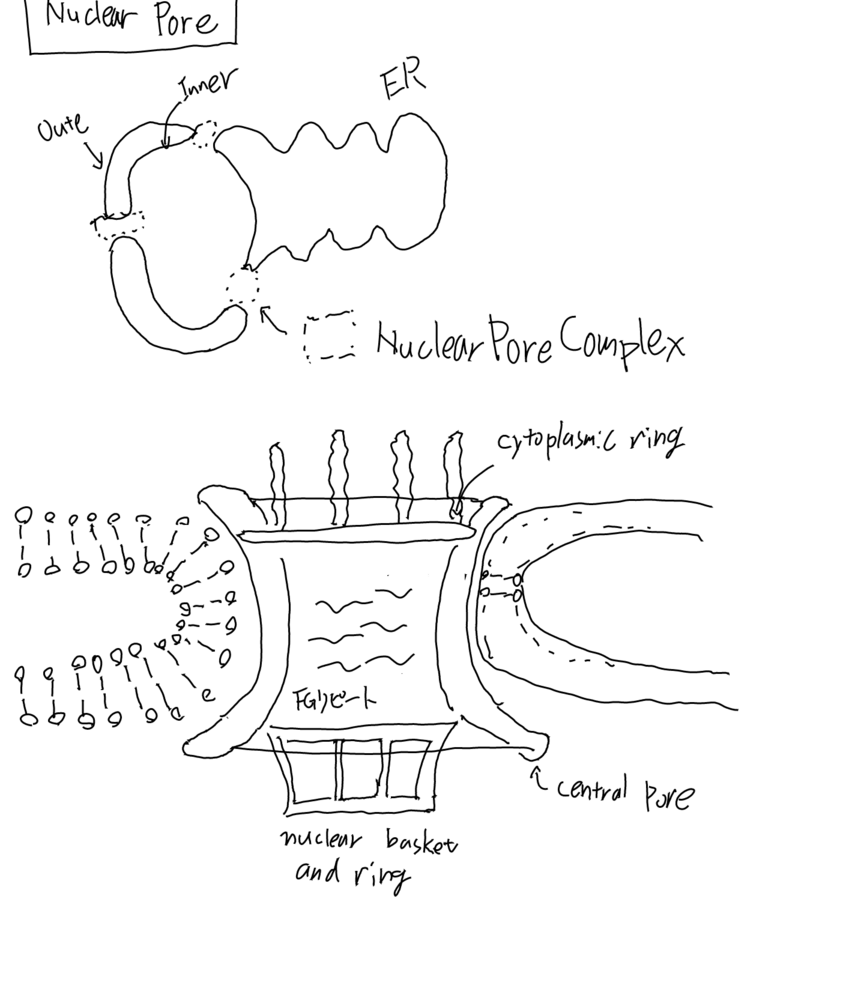 Nuclear Pore
Inner
ER
Oute
Nuclear Pore Complex
cytoplasmic ring
FGリピート
central pore
nuclear basket
and ring